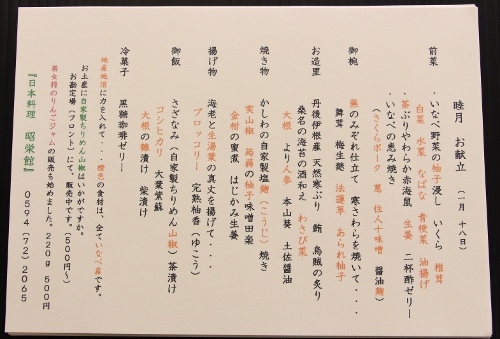 睦月 お献立 (一月 十八日)
前菜
・いなべ野菜の柚子浸し いくら 椎茸
白菜 水菜 なばな 青梗菜 油揚げ
・茶ぶりやわらか赤海鼠 生姜 二杯酢ゼリー
・いなべの恵み焼き
(さくらポーク 葱 住人十味噌 醤油麹)
御椀
蕪のみぞれ仕立て 寒さわらを焼いて・・・
舞茸 梅生麩 法蓮草 あられ柚子
お造里
丹後伊根産 天然寒ぶり 鮪 烏賊の炙り
桑名の海苔の酒和え わさび菜
大根 より人参 本山葵 土佐醤油
焼き物
かしわの自家製塩麹(こうじ)焼き
実山椒 蒟蒻の柚子味噌田楽
金柑の蜜煮 はじかみ生姜
揚げ物
海老と生湯葉の真丈を揚げて・・・
ブロッコリー 完熟柚香(ゆこう)
御飯
さざなみ(自家製ちりめん山椒)茶漬け
コシヒカリ 大葉紫蘇
大根の糠漬け 柴漬け
冷菓子
黒糖珈琲ゼリー
地産地消に力を入れて・・・橙色の食材は、全ていなべ産です。
お土産に自家製ちりめん山椒はいかがですか。
お勘定場(フロント)にて、販売中です。(500円~)
若女将のりんごジャムの販売も始めました。220g 500円
『日本料理 昭栄館』 0594(72)2065